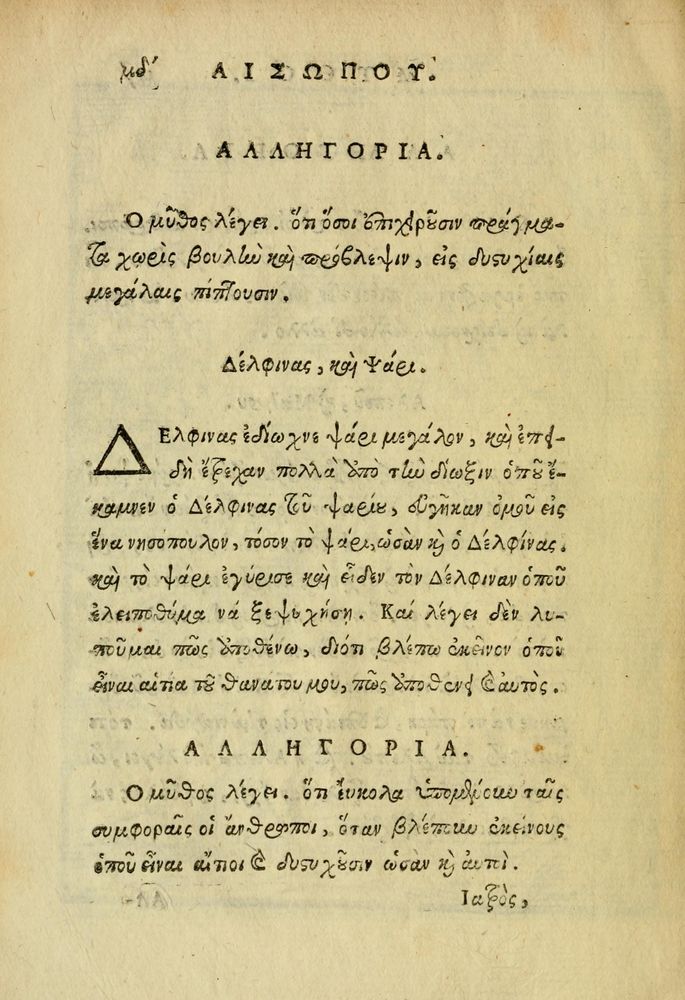 μδ´ ΑΙΣΩΠΟΥ.
ΑΛΛΗΓΟΡΙΑ.
Ὁ μῦθος λέγει. ὅτι ὅσοι ἐπιχειροῦσιν πράγμα-
τα χωρὶς βουλὴν καὶ πρόβλεψιν, εἰς δυςυχίαις
μεγάλαις πίπτουσιν.
Δέλφινας, καὶ Ψάρι.
ΔΕΛΦινας ἐδίωχνε ψάρι μεγάλον, καὶ ἐπει-
δὴ ἔτρεχαν πολλὰ ἀπὸ τὴν δίωξιν ὁποῦ ἔ-
καμνεν ὁ Δέλφινας τοῦ ψαρίου, εὐγῆκαν ὁμοῦ εἰς
ἕνα νησόπουλον, τόσον τὸ ψάρι, ὡσὰν κὶ ὁ Δελφίνας.
καὶ τὸ ψάρι ἐγύρισε καὶ εἶδεν τὸν Δέλφιναν ὁποῦ
ἐλειποθύμα νά ξεψυχήσῃ. Καί λέγει δὲν λυ-
ποῦμαι πῶς ἀποθένω, διότι βλέπω ἐκεῖνον ὁποῦ
εἶναι αἰτία τοῦ θανατου μου, πῶς ἀποθενει καὶ αὐτὸς.
ΑΛΛΗΓΟΡΙΑ.
Ὁ μῦθος λέγει. ὅτι ἔυκολα ὑπομένουν ταῖς
συμφοραῖς οἱ ἄνθρωποι, ὅταν βλέπουν ἐκείνους
ὁποῦ εἶναι αἴτιοι καὶ δυςυχοῦσιν ὡσὰν κὶ αὐτοὶ.
Ιατρὸς,